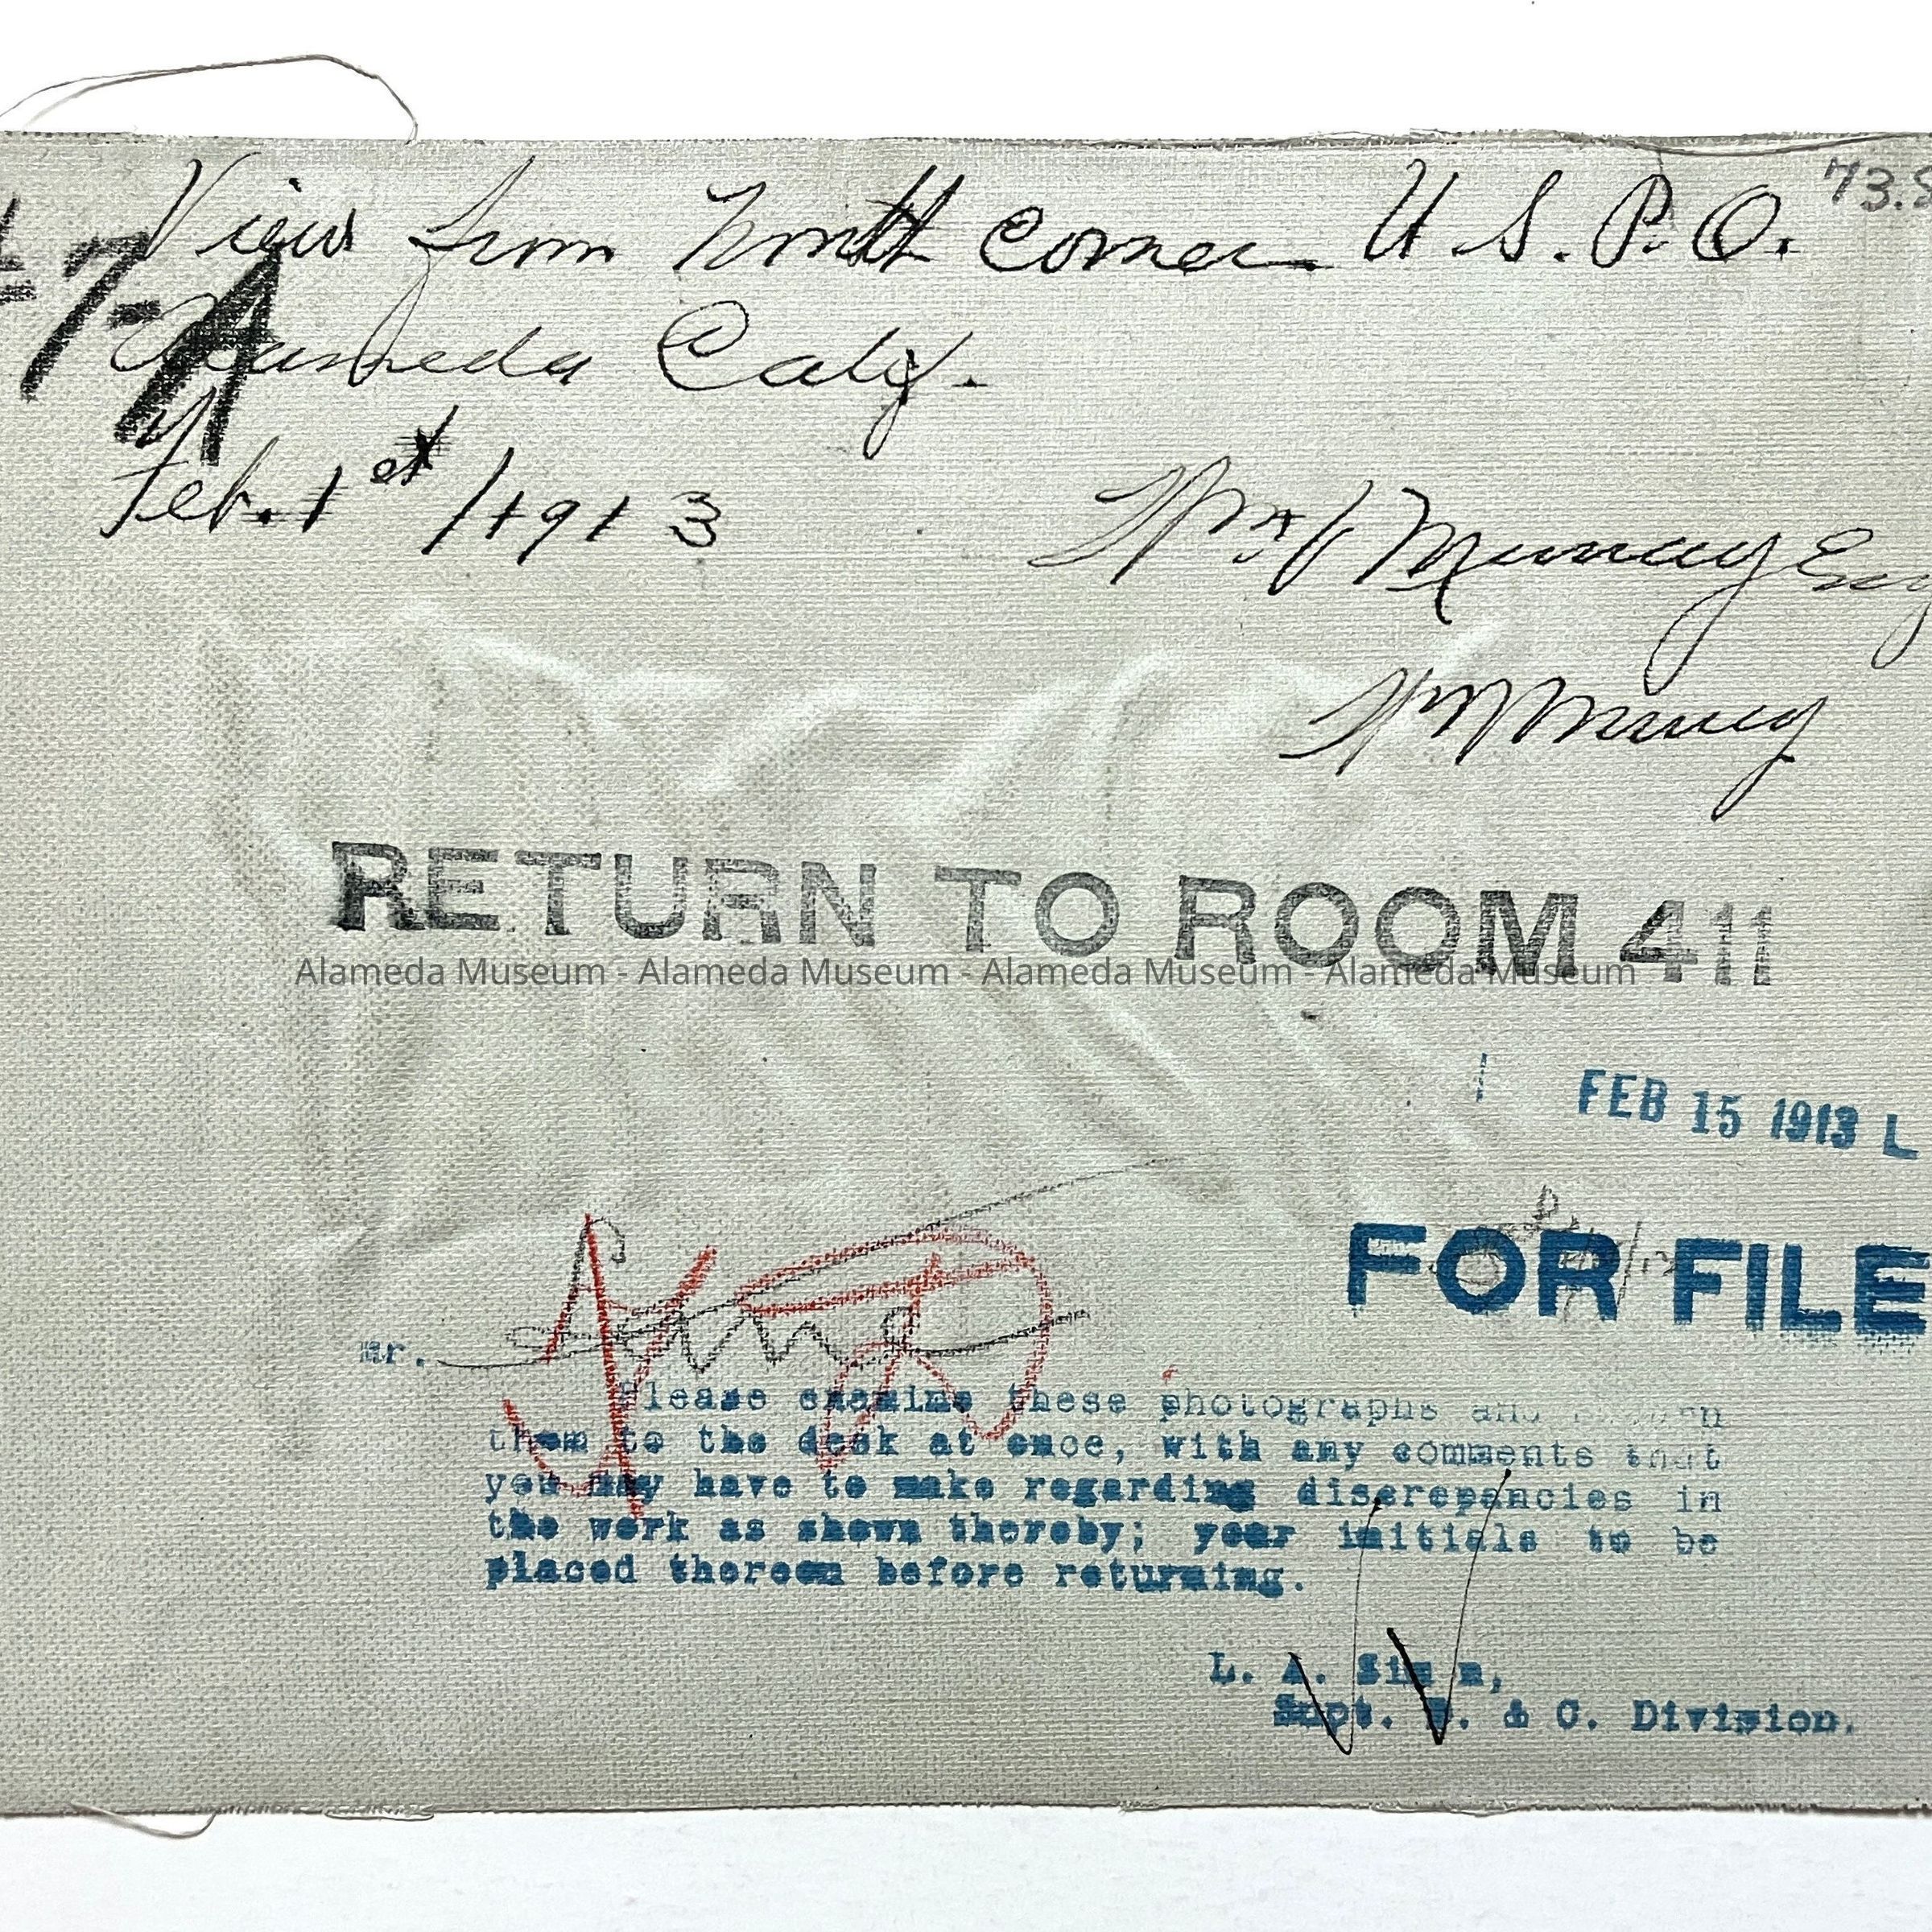 View from North Corner U. S. P. O.
73.
-7-A
Alameda Calif.
Feb. 1st /1913
Murray Esq
Wm Murray
RETURN TO ROOM 411
Alameda Museum - Alameda Museum - Alameda Museum - Alameda Museum
FEB 15 1913 L
FOR FILE
Mr.
Please examine these photographs and
them to the desk at once, with any comments that
you may have to make regarding discrepancies in
the work as shown thereby; your initials to be
placed thereon before returning.
L. A. Sim n,
Supt. & C. Division.